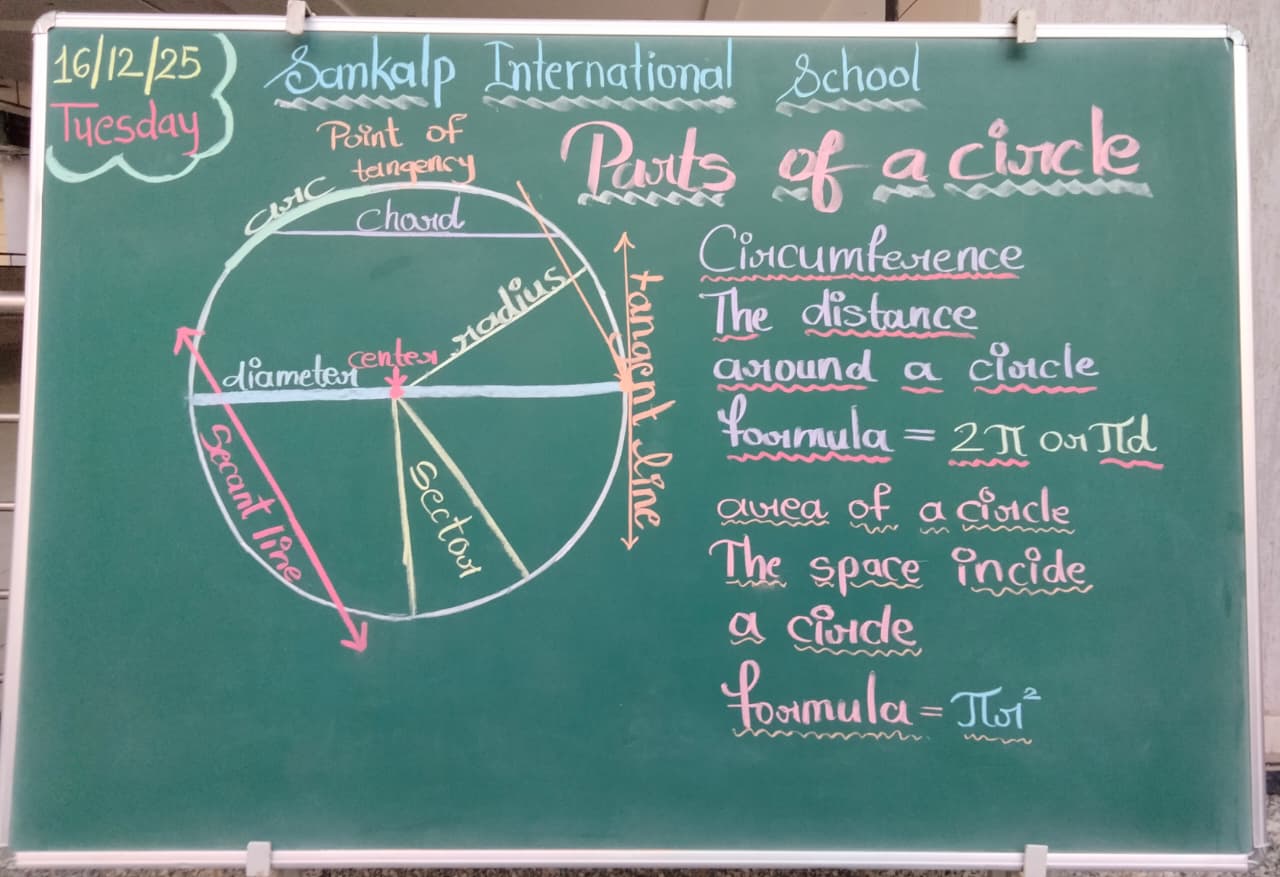 16/12/25
Tuesday
Sankalp International School
Parts of a circle
Point of
tangency
arc
chord
radius
center
diameter
tangent line
secant line
Sector
Circumference
The distance
around a circle
formula = 2π or πd
area of a circle
The space incide
a circle
formula = πr²